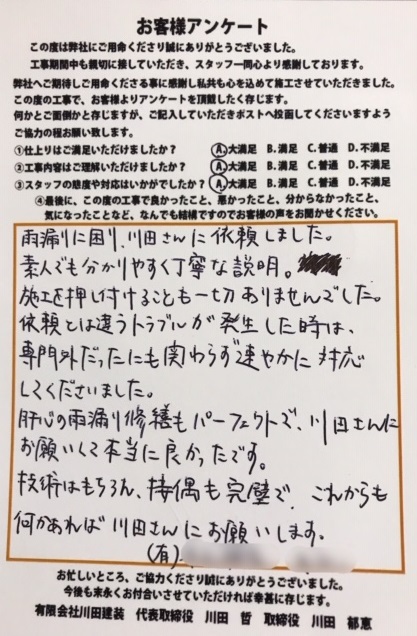 お客様アンケート
この度は弊社にご用命くださり誠にありがとうございました。
工事期間中も親切に接していただき、スタッフ一同心より感謝しております。
弊社へご期待しご用命くださる事に感謝し私共も心を込めて施工させていただきました。
この度の工事で、お客様よりアンケートを頂戴したく存じます。
何かとご面倒かと存じますが、ご記入していただきポストへ投函してくださいますよう
ご協力の程お願い致します。
①仕上りはご満足いただけましたか？ A.大満足 B.満足 C.普通 D.不満足
②工事内容はご理解いただけましたか？ A.大満足 B.満足 C.普通 D.不満足
③スタッフの態度や対応はいかがでしたか？ A.大満足 B.満足 C.普通 D.不満足
④最後に、この度の工事で良かったこと、悪かったこと、分からなかったこと、
気になったことなど、なんでも結構ですのでお客様の声をお聞かせください。
雨漏りに困り、川田さんに依頼しました。
素人でも分かりやすく丁寧な説明。
施工を押し付けることも一切ありませんでした。
依頼とは違うトラブルが発生した時は、
専門外だったにも関わらず速やかに対応
してくださいました。
肝心の雨漏り修繕もパーフェクトで、川田さんに
お願いして本当に良かったです。
技術はもちろん、接偶も完璧で、これからも
何かあれば川田さんにお願いします。
(有)
お忙しいところ、ご協力くださり誠にありがとうございました。
今後も末永くお付合いさせていただければ幸甚に存じます。
有限会社川田建装 代表取締役 川田 哲 取締役 川田 郁恵